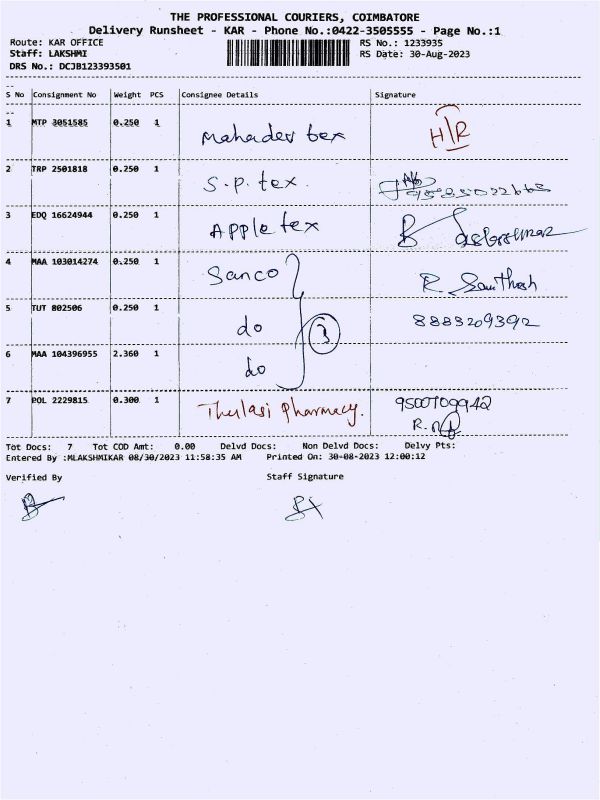 THE PROFESSIONAL COURIERS, COIMBATORE
Delivery Runsheet - KAR - Phone No.:0422-3505555 - Page No.:1
Route: KAR OFFICE RS No.: 1233935
Staff: LAKSHMI RS Date: 30-Aug-2023
DRS No.: DCJB123393501
S No Consignment No Weight PCS Consignee Details Signature
1 MTP 3051585 0.250 1 Mahadev tex H/R
2 TRP 2501818 0.250 1 S.P. tex
3 EDQ 16624944 0.250 1 Apple tex
4 MAA 103014274 0.250 1 Sanco R. Santhosh
5 TUT 802506 0.250 1 do 3 8883209392
6 MAA 104396955 2.360 1 do
7 POL 2229815 0.300 1 Thulasi Pharmacy. 9500709942
Tot Docs: 7 Tot COD Amt: 0.00 Delvd Docs: Non Delvd Docs: Delvy Pts:
Entered By :MLAKSHMIKAR 08/30/2023 11:58:35 AM Printed On: 30-08-2023 12:00:12
Verified By Staff Signature